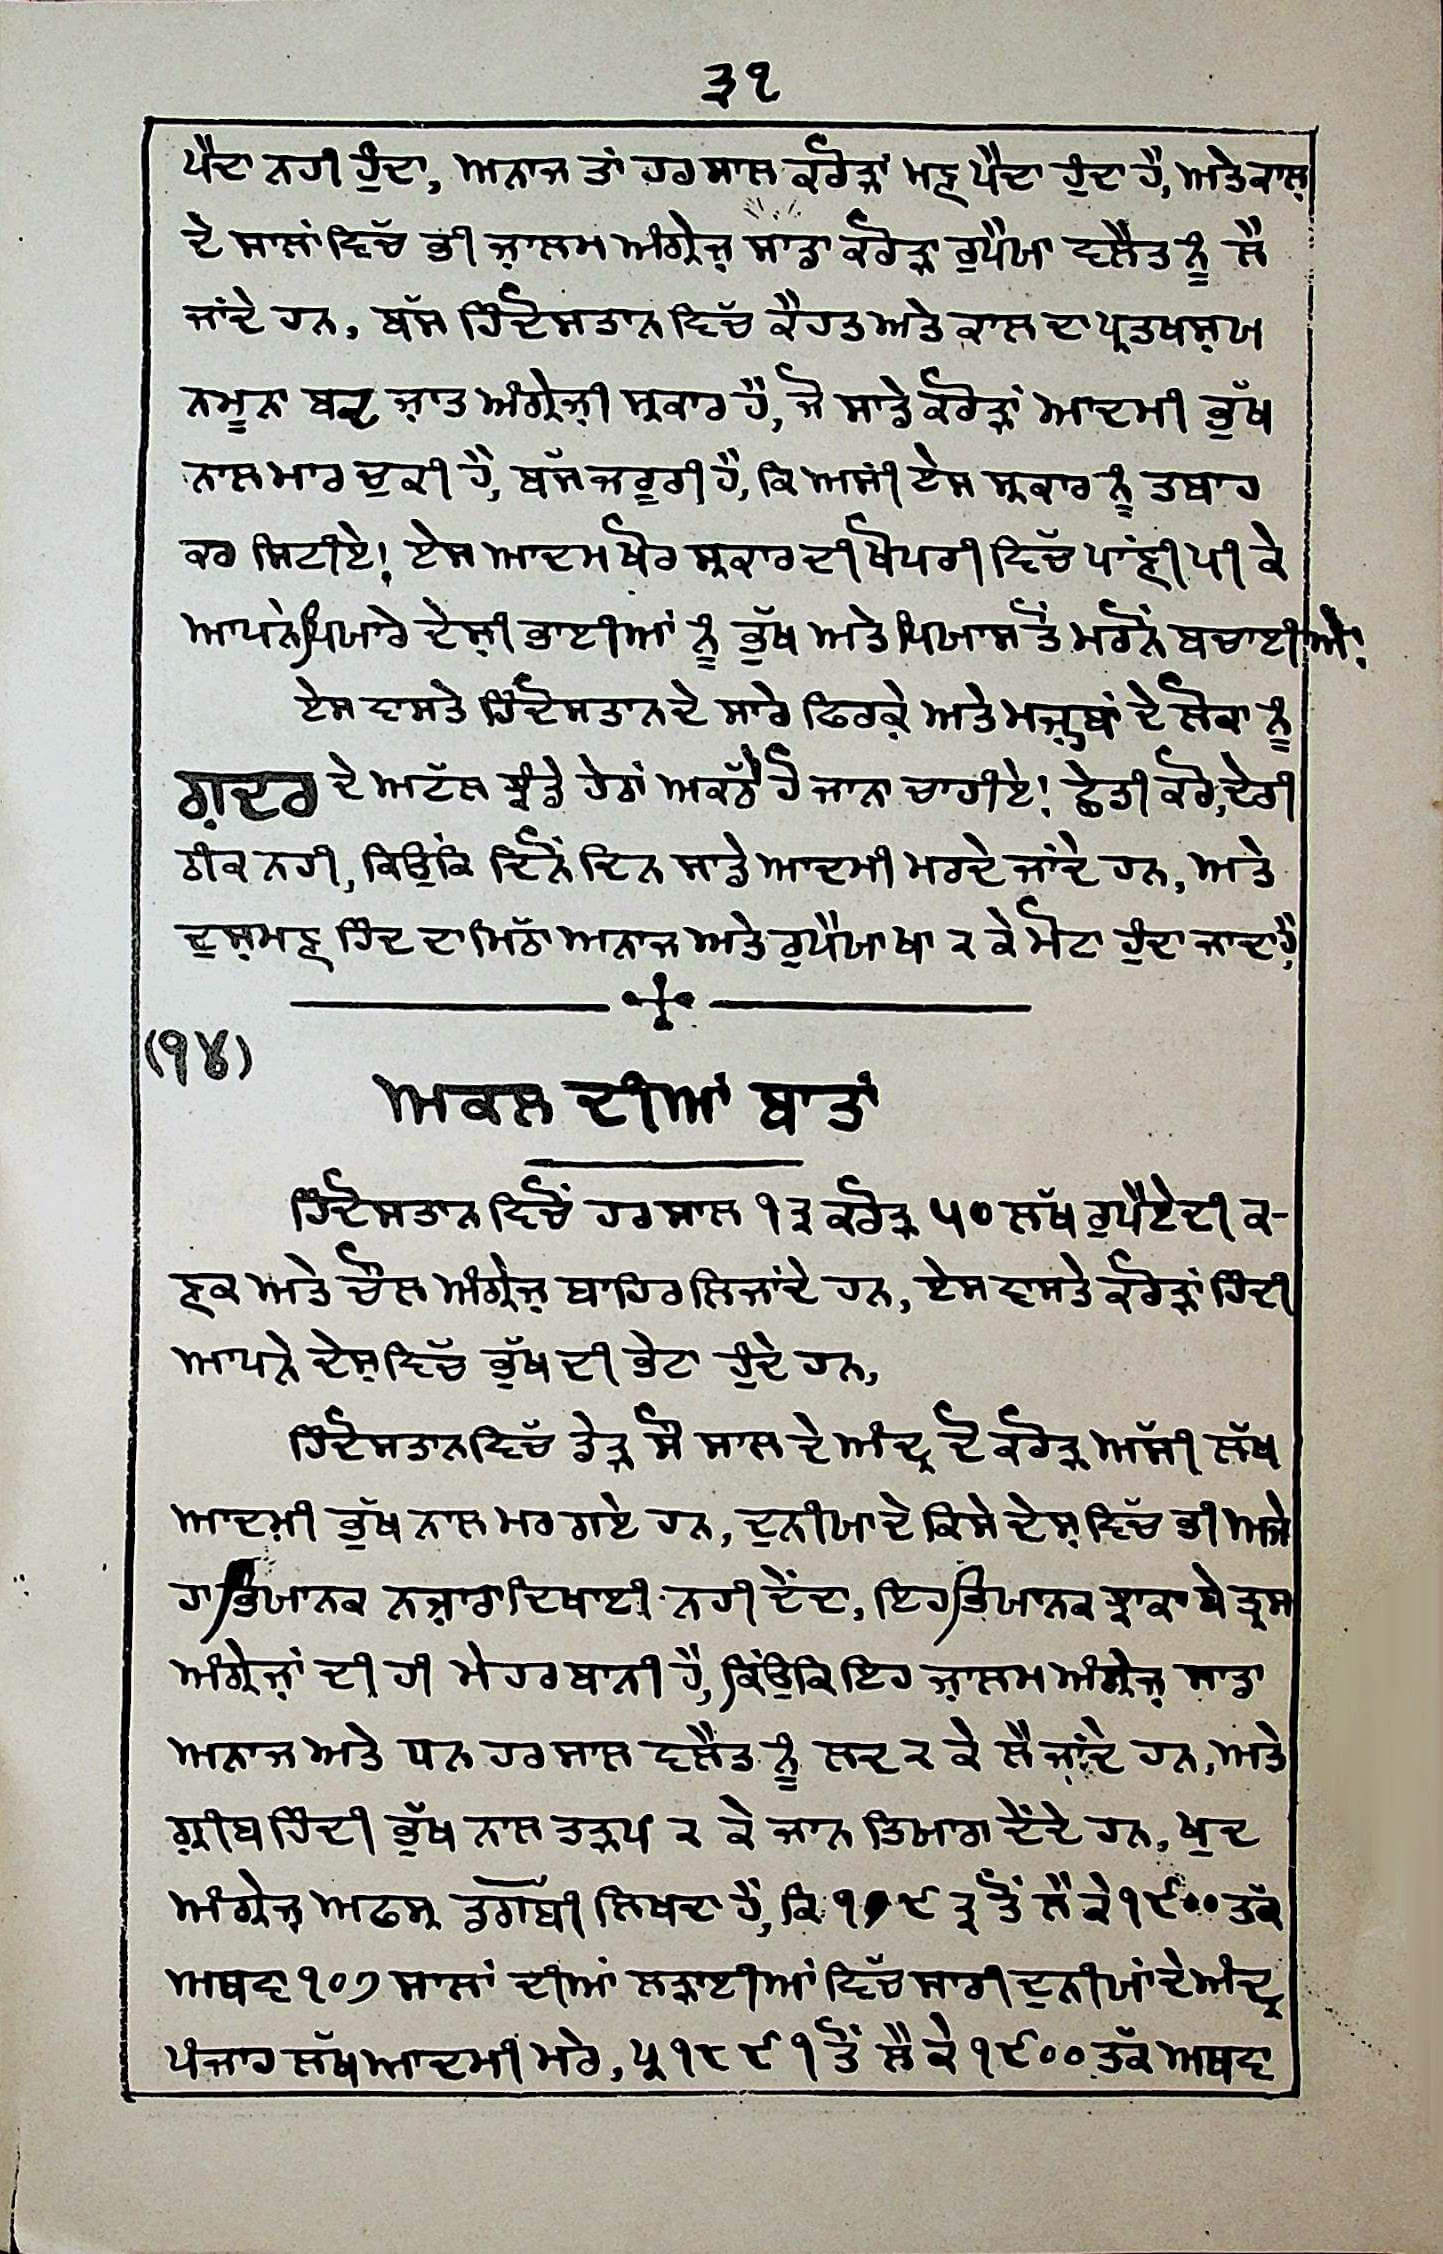 ੩੧
ਪੈਦਾ ਨਹੀ ਹੁੰਦਾ, ਅਨਾਜ ਤਾਂ ਹਰ ਸਾਲ ਕਰੋੜਾਂ ਮਣ ਪੈਦਾ ਹੁੰਦਾ ਹੈ, ਅਤੇ ਕਾਲ਼
ਦੇ ਸਾਲਾਂ ਵਿੱਚ ਭੀ ਜ਼ਾਲਮ ਅੰਗ੍ਰੇਜ਼ ਸਾਡਾ ਕਰੋੜਾ ਰੁਪੈਯਾ ਵਲੈਤ ਨੂੰ ਲੈ
ਜਾਂਦੇ ਹਨ, ਬੱਸ ਹਿੰਦੋਸਤਾਨ ਵਿੱਚ ਕੈਹਤ ਅਤੇ ਕਾਲ ਦਾ ਪ੍ਰਤਖਸ਼ਯ
ਨਮੂਨਾ ਬਦ ਜ਼ਾਤ ਅੰਗ੍ਰੇਜ਼ੀ ਸ੍ਰਕਾਰ ਹੈ, ਜੋ ਸਾਡੇ ਕਰੋੜਾਂ ਆਦਮੀ ਭੁੱਖ
ਨਾਲ ਮਾਰ ਚੁਕੀ ਹੈ, ਬੱਸ ਜਰੂਰੀ ਹੈ, ਕਿ ਅਸੀਂ ਏਸ ਸ੍ਰਕਾਰ ਨੂੰ ਤਬਾਹ
ਕਰ ਸਿਟੀਏ! ਏਸ ਆਦਮ ਖੋਰ ਸ੍ਰਕਾਰ ਦੀ ਖੋਪਰੀ ਵਿੱਚ ਪਾਂਣੀ ਪੀ ਕੇ
ਆਪਨੇ ਪਿਯਾਰੇ ਦੇਸ਼ੀ ਭਾਈਆਂ ਨੂੰ ਭੁੱਖ ਅਤੇ ਪਿਯਾਸ ਤੋਂ ਮਰਨੋਂ ਬਚਾਈਐ!
ਏਸ ਵਾਸਤੇ ਹਿੰਦੋਸਤਾਨ ਦੇ ਸਾਰੇ ਫਿਰਕ਼ੇ ਅਤੇ ਮਜ਼੍ਹਬਾਂ ਦੇ ਲੋਕਾ ਨੂੰ
ਗ਼ਦਰ ਦੇ ਅਟੱਲ ਝੰਡੇ ਹੇਠਾਂ ਅਕਠੇ ਹੋ ਜਾਨਾ ਚਾਹੀਏ! ਛੇਤੀ ਕਰੋ, ਦੇਰੀ
ਠੀਕ ਨਹੀ, ਕਿਉਂਕਿ ਦਿਨੋਂ ਦਿਨ ਸਾਡੇ ਆਦਮੀ ਮਰਦੇ ਜਾਂਦੇ ਹਨ, ਅਤੇ
ਦੁਸ਼ਮਣ ਹਿੰਦ ਦਾ ਮਿਠਾ ਅਨਾਜ ਅਤੇ ਰੁਪੈਯਾ ਖਾ ੨ ਕੇ ਮੋਟਾ ਹੁੰਦਾ ਜਾਦਾ ਹੈ,
(੧੪)
ਅਕਲ ਦੀਆਂ ਬਾਤਾਂ
ਹਿੰਦੋਸਤਾਨ ਵਿਚੋਂ ਹਰ ਸਾਲ ੧੩ ਕਰੋੜ ੫੦ ਲੱਖ ਰੁਪੈਏ ਦੀ ਕ-
ਣਕ ਅਤੇ ਚੌਲ ਅੰਗ੍ਰੇਜ਼ ਬਾਹਿਰ ਲਿਜਾਂਦੇ ਹਨ, ਏਸ ਵਾਸਤੇ ਕਰੋੜਾਂ ਹਿੰਦੀ
ਆਪਨੇ ਦੇਸ਼ ਵਿੱਚ ਭੁੱਖ ਦੀ ਭੇਟਾ ਹੁੰਦੇ ਹਨ,
ਹਿੰਦੋਸਤਾਨ ਵਿੱਚ ਡੇੜ ਸੌ ਸਾਲ ਦੇ ਅੰਦ੍ਰ ਦੋ ਕਰੋੜ ਅਸੀ ਲੱਖ
ਆਦਮੀ ਭੁੱਖ ਨਾਲ ਮਰ ਗਏ ਹਨ, ਦੁਨੀਯਾ ਦੇ ਕਿਸੇ ਦੇਸ਼ ਵਿੱਚ ਭੀ ਅਜੇ
ਹਾ ਭਿਯਾਨਕ ਨਜ਼ਾਰਾ ਦਿਖਾਈ ਨਹੀ ਦੇਂਦਾ, ਇਹ ਭਿਯਾਨਕ ਝਾਕਾ ਬੇ ਤ੍ਰਸ
ਅੰਗ੍ਰੇਜ਼ਾਂ ਦੀ ਹੀ ਮੇਹਰਬਾਨੀ ਹੈ, ਕਿਉਂਕਿ ਇਹ ਜ਼ਾਲਮ ਅੰਗ੍ਰੇਜ਼ ਸਾਡਾ
ਅਨਾਜ ਅਤੇ ਧਨ ਹਰ ਸਾਲ ਵਲੈਤ ਨੂੰ ਲਦ ੨ ਕੇ ਲੈ ਜਾਂਦੇ ਹਨ, ਅਤੇ
ਗ਼੍ਰੀਬ ਹਿੰਦੀ ਭੁੱਖ ਨਾਲ ਤੜਪ ੨ ਕੇ ਜਾਨ ਤਿਯਾਗ ਦੇਂਦੇ ਹਨ, ਖੁਦ
ਅੰਗ੍ਰੇਜ਼ ਅਫਸ੍ਰ ਡਗਬੀ ਲਿਖਦਾ ਹੈ, ਕਿ ੧੭੯੩ ਤੋਂ ਲੈ ਕੇ ੧੯੦੦ ਤੱਕ
ਅਥਵਾ ੧੦੭ ਸਾਲਾਂ ਦੀਆਂ ਲੜਾਈਆਂ ਵਿੱਚ ਸਾਰੀ ਦੁਨੀਯਾਂ ਦੇ ਅੰਦ੍ਰ
ਪੰਜਾਹ ਲੱਖ ਆਦਮੀ ਮਰੇ, ਪ੍ਰ ੧੮੯੧ ਤੋਂ ਲੈ ਕੇ ੧੯੦੦ ਤੱਕ ਅਥਵਾ